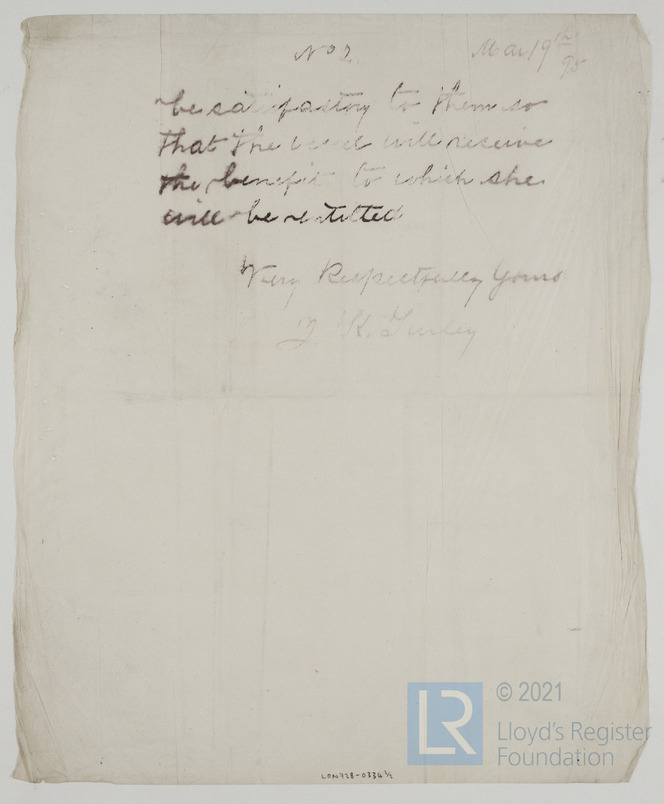 No 2 Mar 19th 95
be satisfactory to them so
that the vessel will receive
the benefit to which she
will be entitled
Very Respectfully Yours
H. Turley
LON928-0334 1/2
LR
© 2021
Lloyd's Register
Foundation